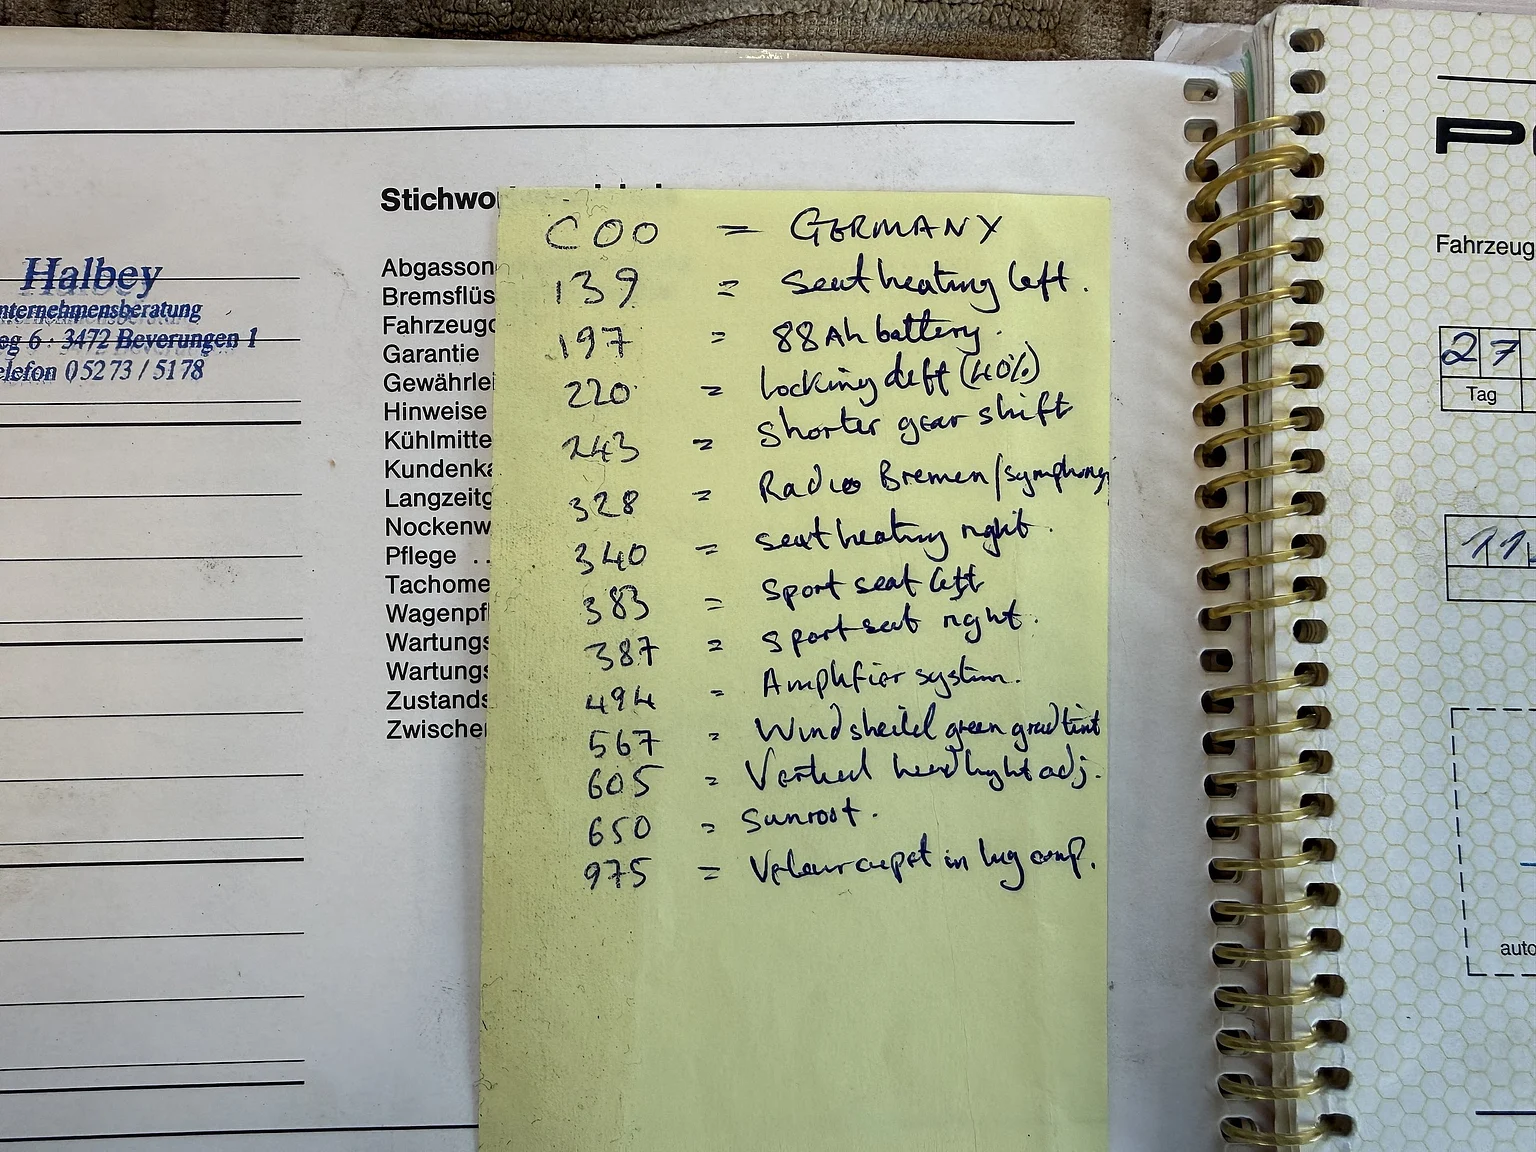 Halbey
nternehmensberatung
eg 6 · 3472 Beverungen 1
elefon 0 52 73 / 51 78
Stichwo
Abgasson
Bremsflüs
Fahrzeugd
Garantie
Gewährlei
Hinweise
Kühlmitte
Kundenka
Langzeitg
Nockenw
Pflege ..
Tachome
Wagenpf
Wartungs
Wartungs
Zustands
Zwischen
C00 = GERMANY
139 = seat heating left.
197 = 88Ah battery.
220 = locking diff (40%)
243 = shorter gear shift
328 = Radio Bremen/symphony
340 = seat heating right.
383 = sport seat left
387 = sport seat right.
494 = Amplifier system.
567 = Windsheild green grad tint
605 = Vertical headlight adj.
650 = Sunroof.
975 = Velour carpet in lug comp.
Fahrzeug
27
Tag
11
auto